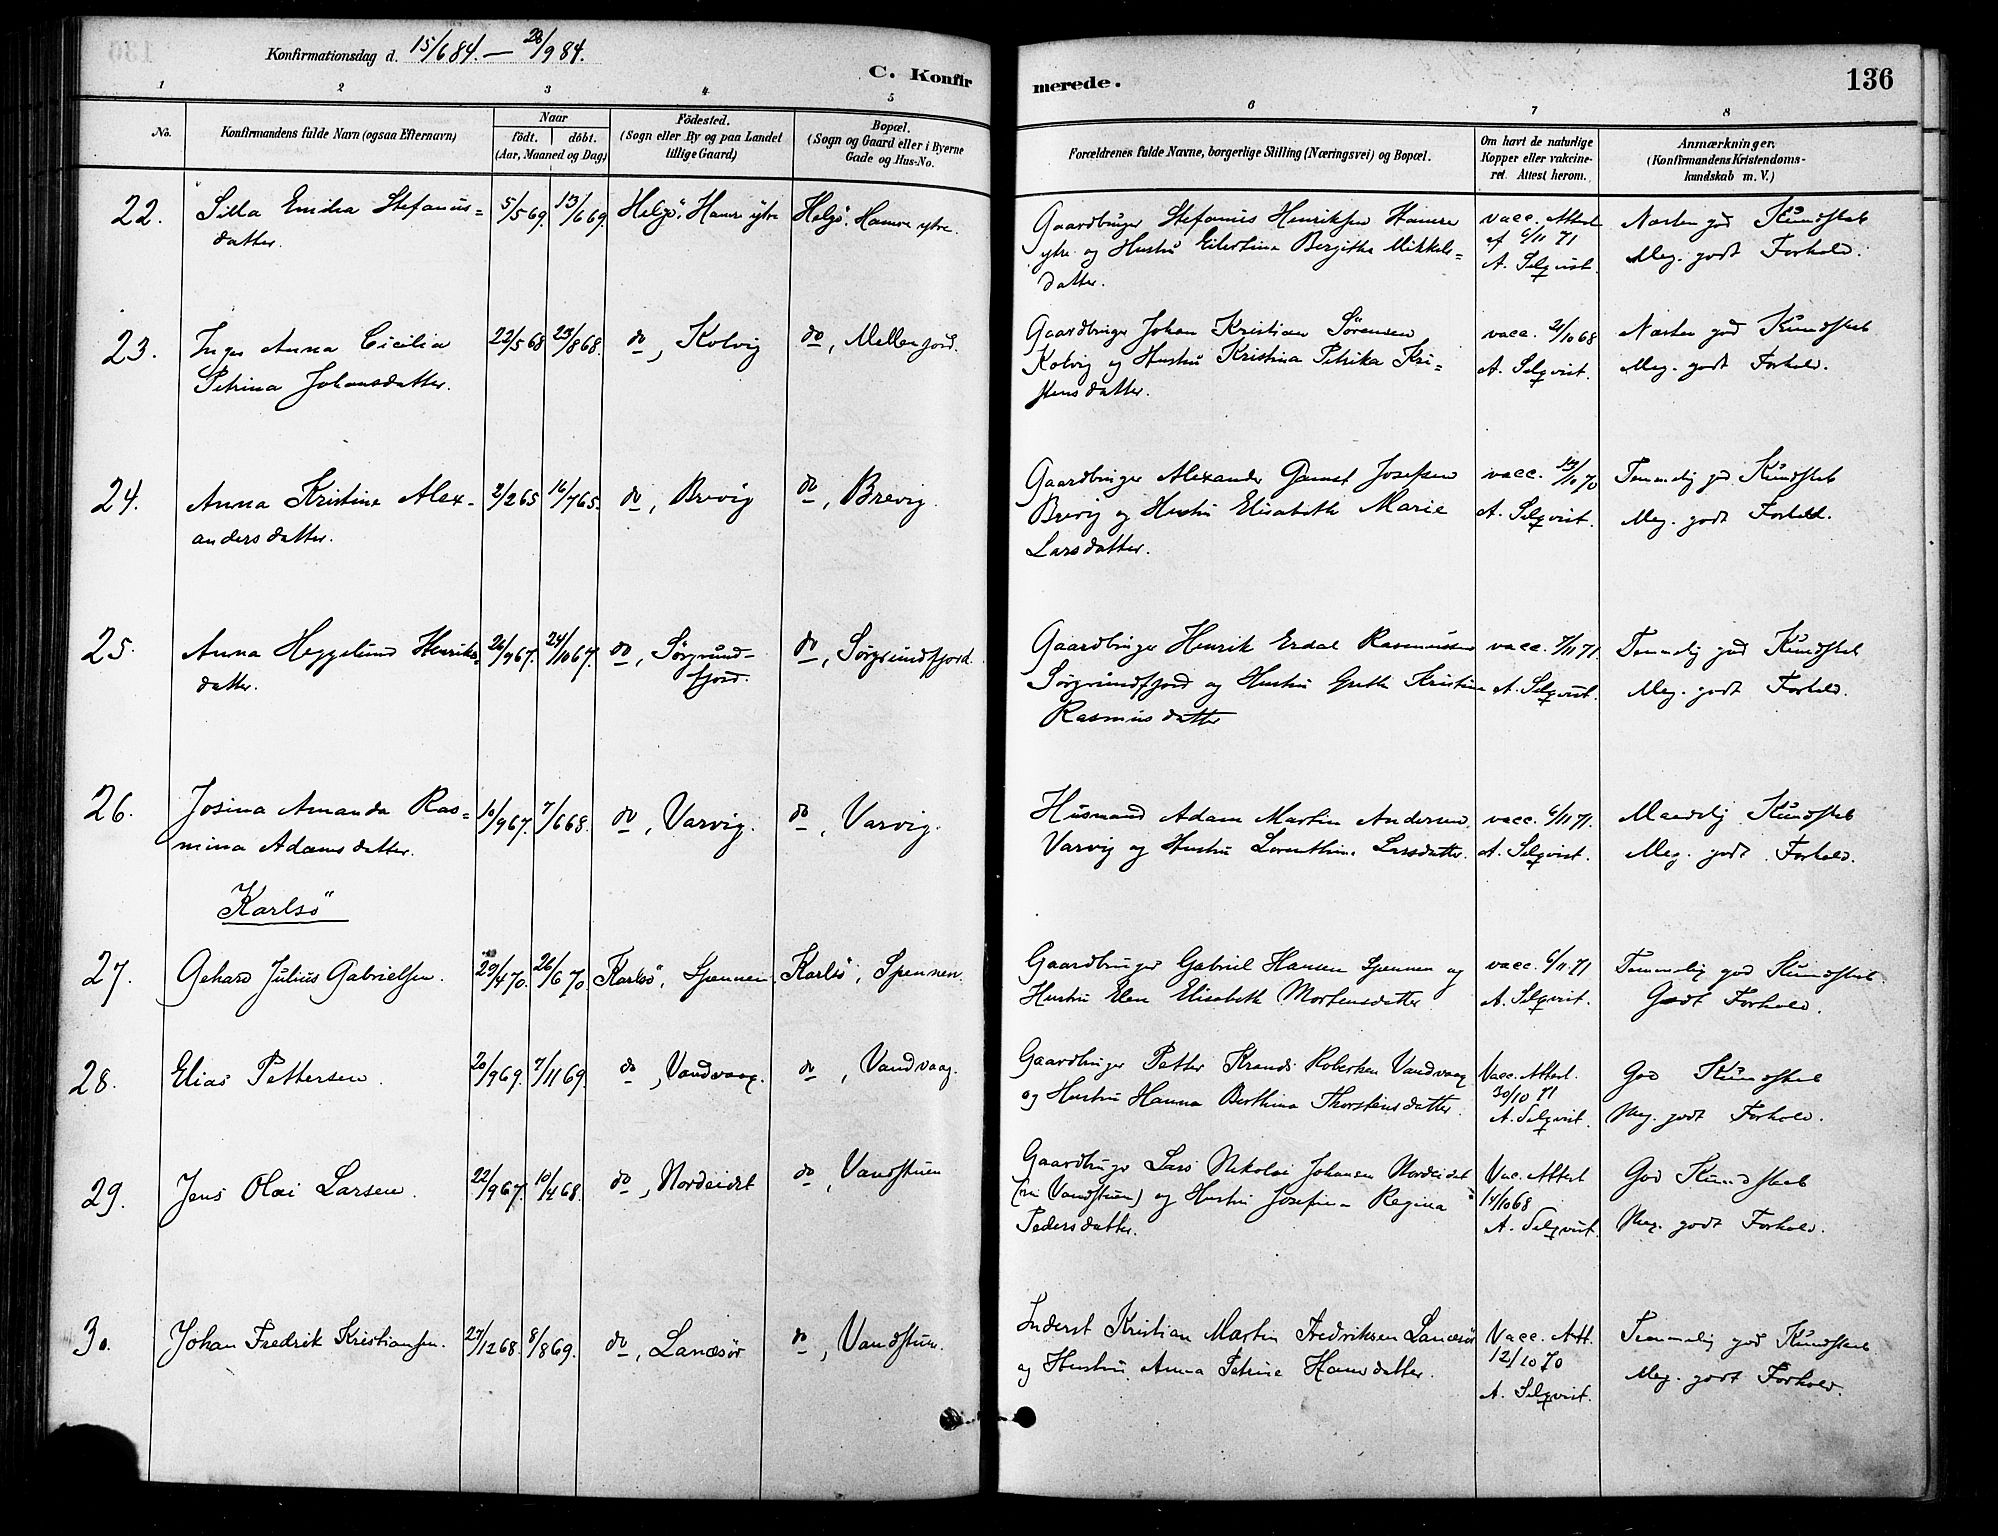 Konfirmationsdag d. 15/6 84. — 28/9 84.
C. Konfirmerede.
136
1 2 3 4 5 6 7 8
No.
Konfirmandens fulde Navn (ogsaa Efternavn)
Naar
födt. döbt.
(Aar, Maaned og Dag)
Födested.
(Sogn eller By og paa Landet
tillige Gaard)
Bopæl.
(Sogn og Gaard eller i Byerne
Gade og Hus-No.
Forældrenes fulde Navne, borgerlige Stilling (Næringsvei) og Bopæl.
Om havt de naturlige
Kopper eller vakcine-
ret. Attest herom.
Anmærkninger.
(Konfirmandens Kristendoms-
kundskab m. V.)
22. Silla Emilia Stefanus= 5/5 69. 13/6 69. Helgö, Hamre ytre Helgö, Hamre ytre. Gaardbruger Stefanus Henriksen Hamre vacc. Attest Næsten god Kundskab
datter. ytre og Hustru Eilertina Bergitha Mikkels= af 6/11 71 Meg. godt Forhold.
datter. A. Selqvist.
23. Inger Anna Cicilia 22/5 68 23/8 68. do, Kolvig do, Mellenfjord. Gaardbruger Johan Kristian Sörensen vacc. 21/10 68 Næsten god Kundskab
Petrina Johansdatter. Kolvig og Hustru Kristina Petrika Kri= A. Selqvist. Meg. godt Forhold.
stensdatter.
24. Anna Kristine Alex= 2/2 65 16/7 65. do, Brevig do, Brevig. Gaardbruger Alexander Josefsen vacc. 13/10 70 Temmelig god Kundskab
andersdatter. Brevig og Hustru Elisabeth Marie A. Selqvist. Meg. godt Forhold.
Larsdatter.
25. Anna Heggelund Henriks= 26/9 67. 24/10 67. do, Sörgrund= do, Sörgrundfjord. Gaardbruger Henrik Erdal Rasmussen vacc. 7/11 71. Temmelig god Kundskab
datter. fjord. Sörgrundfjord og Hustru Greth Kristine A. Selqvist. Meg. godt Forhold.
Rasmusdatter
26. Josina Amanda Ras= 10/9 67. 7/6 68. do, Varvig. do, Varvig. Husmand Adam Martin Andersen vacc. 6/11 71. Maadelig Kundskab
mina Adamsdatter. Varvig og Hustru Lorenthine Larsdatter. A. Selqvist. Meg. godt Forhold.
Karlsö
27. Gehard Julius Gabrielsen. 29/4 70. 26/6 70 Karlsö, Spennen. Karlsö, Spennen. Gaardbruger Gabriel Hansen Spennen og vacc. 6/11 71 Temmelig god Kundskab.
Hustru Elen Elisabeth Mortensdatter A. Selqvist. Godt Forhold.
28. Elias Pettersen. 20/9 69. 7/11 69. do, Vandvaag. do, Vandvaag. Gaardbruger Petter Robertsen Vandvaag Vacc. Attest. God Kundskab
og Hustru Hanna Berthina Thorstensdatter. 30/10 71 Meg. godt Forhold.
A. Selqvist.
29. Jens Olai Larsen. 22/9 67. 10/4 68. do, Nordeidet do, Vandstuen Gaardbruger Lars Nikolai Johansen Nordeidet Vac. Attest God Kundskab
(nu Vandstuen) og Hustru Josefine Regina 14/10 68 Meg. godt Forhold.
Pedersdatter. A. Selqvist.
30. Johan Fredrik Kristiansen. 27/12 68. 8/8 69. do, Lanesör do, Vandstuen. Inderst Kristian Martin Fredriksen Lanesör Vacc. Att. Temmelig god Kundskab
og Hustru Anna Petrine Hansdatter. 12/10 70 Meg. godt Forhold.
A. Selqvist.